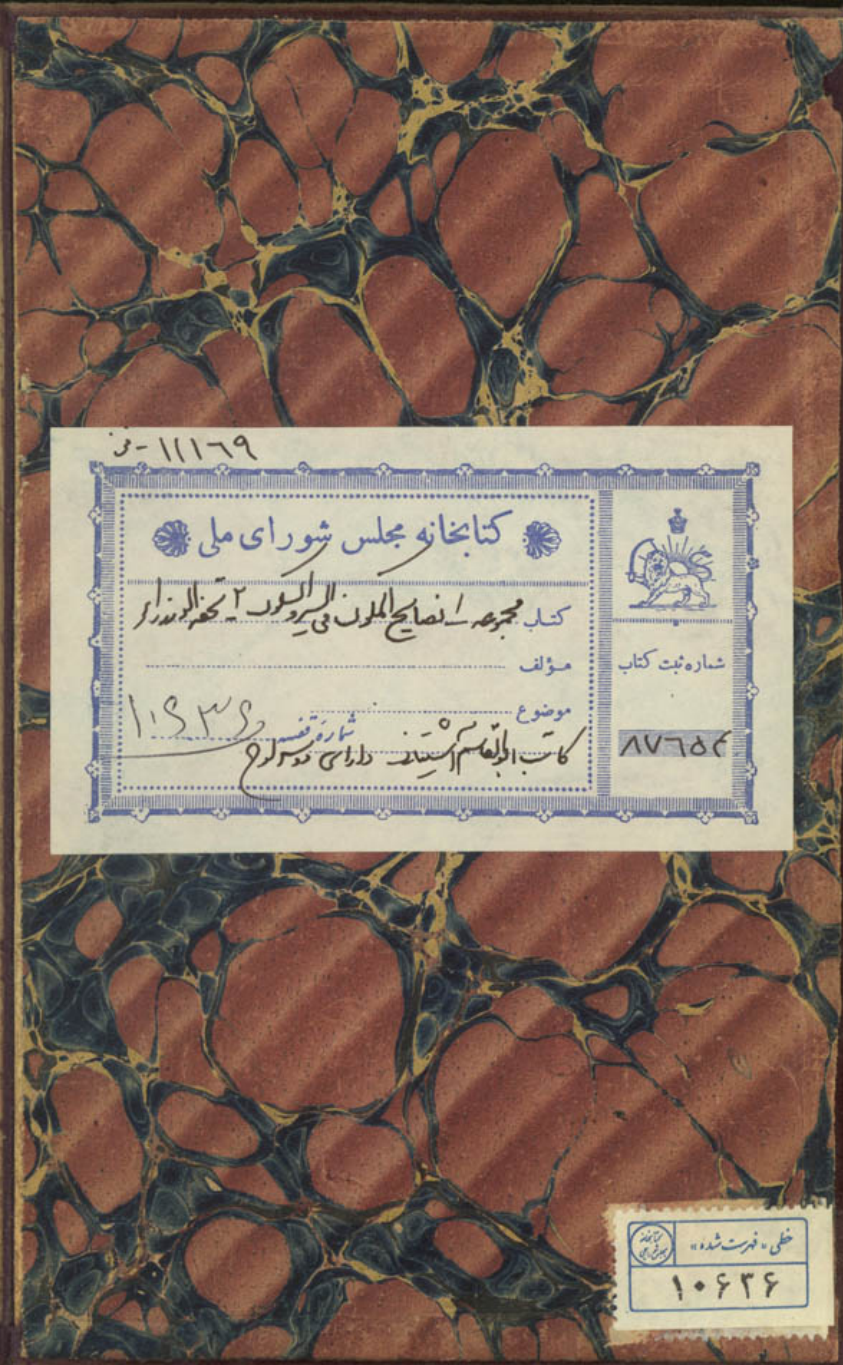 ۱۱۱۶۹ - فز
کتابخانه مجلس شورای ملی
کتاب مجموعه ۱- نصایح الملوک فی السیر و السلوک ۲- تحفه الوزراء
مؤلف
موضوع
شماره قفسه
کاتب ابوالقاسم آشتیانی دارای دو سرلوح
شماره ثبت کتاب
۸۷۶۵۴
خطی «فهرست شده»
۱۰۶۳۶